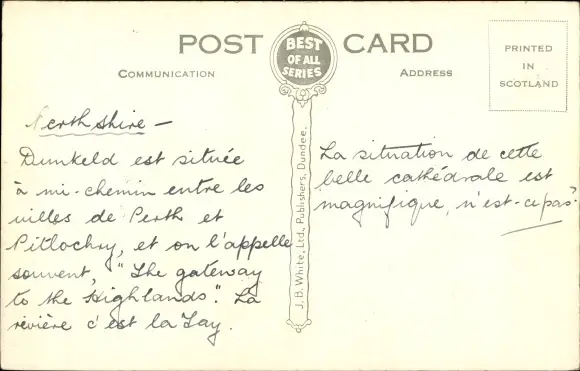 POST CARD
BEST
OF ALL
SERIES
COMMUNICATION
ADDRESS
PRINTED
IN
SCOTLAND
Perthshire —
Dunkeld est située
à mi-chemin entre les
villes de Perth et
Pitlochry, et on l'appelle
souvent, "The gateway
to the Highlands". La
rivière c'est la Tay.
J. B. White, Ltd., Publishers, Dundee.
La situation de cette
belle cathédrale est
magnifique, n'est-ce pas?